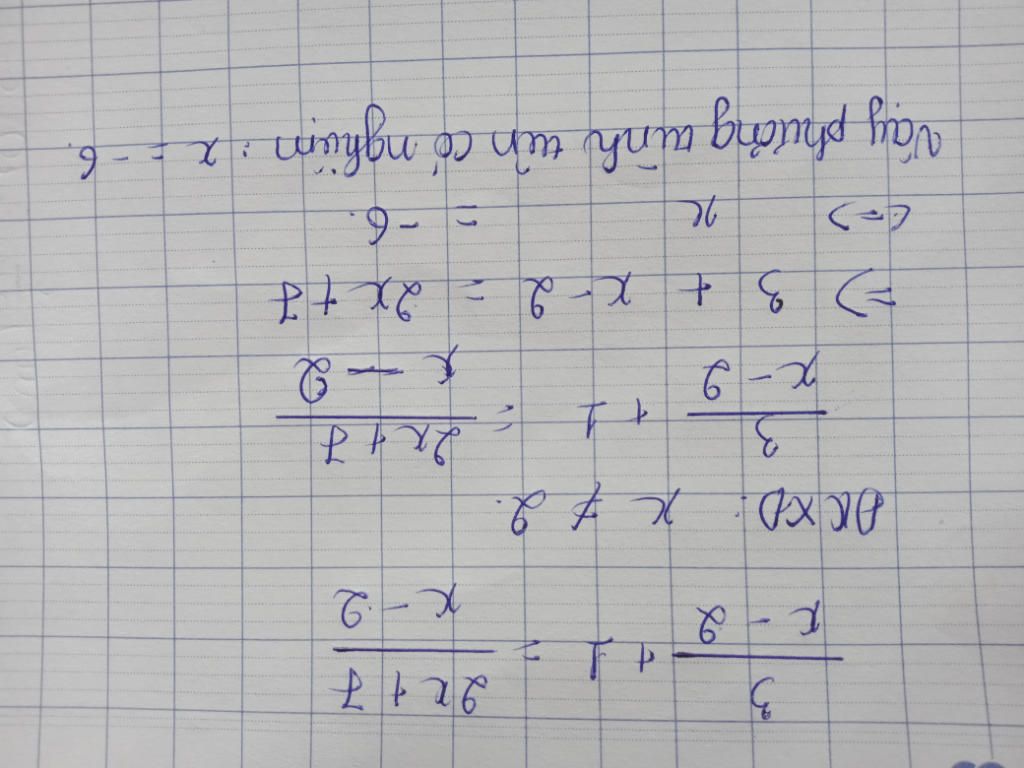 3/(x - 2) + 1 = (2x + 7)/(x - 2)
ĐKXĐ: x ≠ 2.
3/(x - 2) + 1 = (2x + 7)/(x - 2)
=> 3 + x - 2 = 2x + 7
<=> x = -6.
Vậy phương trình trên có nghiệm: x = -6.